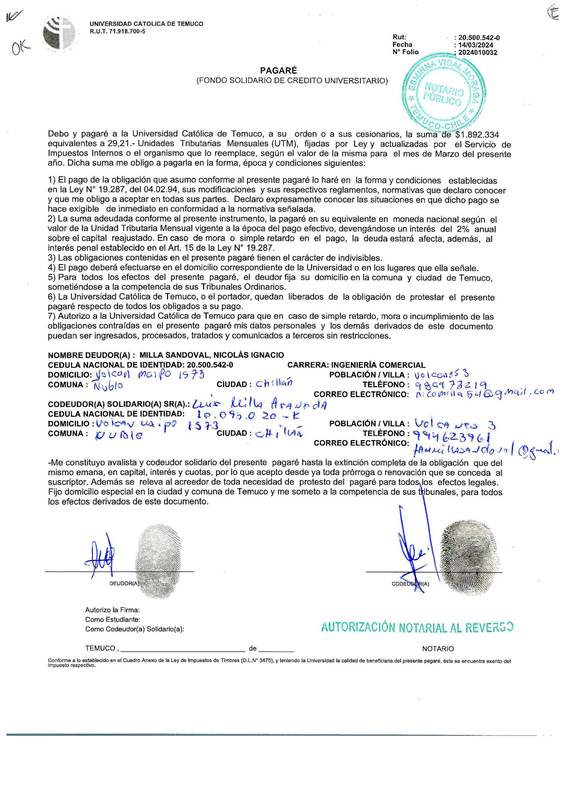 OK
UNIVERSIDAD CATOLICA DE TEMUCO
R.U.T. 71.918.700-5
Rut: : 20.500.542-0
Fecha : 14/03/2024
N° Folio : 2024010032
PAGARÉ
(FONDO SOLIDARIO DE CREDITO UNIVERSITARIO)
ESMIRNA VIDAL MORAGA
NOTARIO
PÚBLICO
TEMUCO-CHILE
Debo y pagaré a la Universidad Católica de Temuco, a su orden o a sus cesionarios, la suma de $1.892.334
equivalentes a 29,21.- Unidades Tributarias Mensuales (UTM), fijadas por Ley y actualizadas por el Servicio de
Impuestos Internos o el organismo que lo reemplace, según el valor de la misma para el mes de Marzo del presente
año. Dicha suma me obligo a pagarla en la forma, época y condiciones siguientes:
1) El pago de la obligación que asumo conforme al presente pagaré lo haré en la forma y condiciones establecidas
en la Ley N° 19.287, del 04.02.94, sus modificaciones y sus respectivos reglamentos, normativas que declaro conocer
y que me obligo a aceptar en todas sus partes. Declaro expresamente conocer las situaciones en que dicho pago se
hace exigible de inmediato en conformidad a la normativa señalada.
2) La suma adeudada conforme al presente instrumento, la pagaré en su equivalente en moneda nacional según el
valor de la Unidad Tributaria Mensual vigente a la época del pago efectivo, devengándose un interés del 2% anual
sobre el capital reajustado. En caso de mora o simple retardo en el pago, la deuda estará afecta, además, al
interés penal establecido en el Art. 15 de la Ley N° 19.287.
3) Las obligaciones contenidas en el presente pagaré tienen el carácter de indivisibles.
4) El pago deberá efectuarse en el domicilio correspondiente de la Universidad o en los lugares que ella señale.
5) Para todos los efectos del presente pagaré, el deudor fija su domicilio en la comuna y ciudad de Temuco,
sometiéndose a la competencia de sus Tribunales Ordinarios.
6) La Universidad Católica de Temuco, o el portador, quedan liberados de la obligación de protestar el presente
pagaré respecto de todos los obligados a su pago.
7) Autorizo a la Universidad Católica de Temuco para que en caso de simple retardo, mora o incumplimiento de las
obligaciones contraídas en el presente pagaré mis datos personales y los demás derivados de este documento
puedan ser ingresados, procesados, tratados y comunicados a terceros sin restricciones.
NOMBRE DEUDOR(A) : MILLA SANDOVAL, NICOLÁS IGNACIO
CEDULA NACIONAL DE IDENTIDAD: 20.500.542-0 CARRERA: INGENIERÍA COMERCIAL
DOMICILIO: Volcan maipo 1573 POBLACIÓN / VILLA : Volcanes 3
COMUNA : Ñuble CIUDAD : Chillán TELÉFONO : 989473219
CORREO ELECTRÓNICO: n.comilla54@gmail.com
CODEUDOR(A) SOLIDARIO(A) SR(A).: Luis Milla Araneda
CEDULA NACIONAL DE IDENTIDAD: 10.095.020-K
DOMICILIO : Volcan maipo 1573 POBLACIÓN / VILLA : Volcanes 3
COMUNA : ÑUBLE CIUDAD : CHILLÁN TELÉFONO : 994623961
CORREO ELECTRÓNICO:
-Me constituyo avalista y codeudor solidario del presente pagaré hasta la extinción completa de la obligación que del
mismo emana, en capital, interés y cuotas, por lo que acepto desde ya toda prórroga o renovación que se conceda al
suscriptor. Además se releva al acreedor de toda necesidad de protesto del pagaré para todos los efectos legales.
Fijo domicilio especial en la ciudad y comuna de Temuco y me someto a la competencia de sus tribunales, para todos
los efectos derivados de este documento.
DEUDOR(A) CODEUDOR(A)
Autorizo la Firma:
Como Estudiante:
Como Codeudor(a) Solidario(a):
AUTORIZACIÓN NOTARIAL AL REVERSO
TEMUCO, ____ de ____ NOTARIO
Conforme a lo establecido en el Cuadro Anexo de la Ley de Impuestos de Timbres (D.L.N° 3475), y teniendo la Universidad la calidad de beneficiaria del presente pagaré, éste se encuentra exento del
impuesto respectivo.